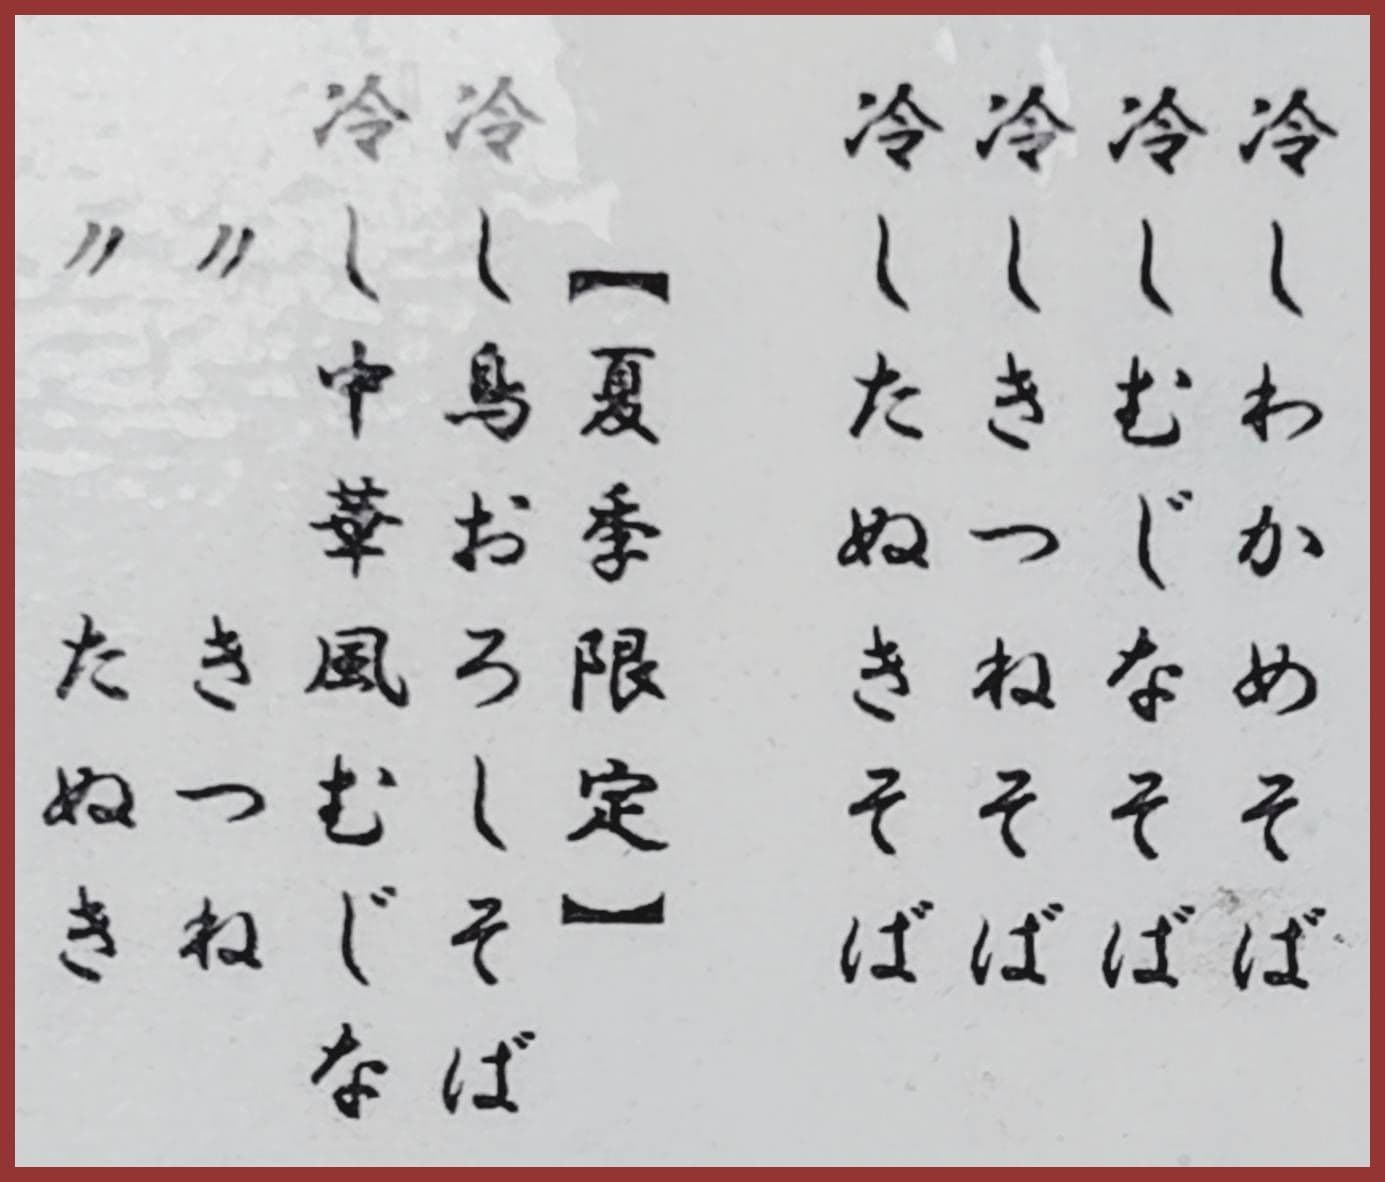 冷しわかめそば
冷しむじなそば
冷しきつねそば
冷したぬきそば
【夏季限定】
冷し鳥おろしそば
冷し中華風むじな
〃 きつね
〃 たぬき